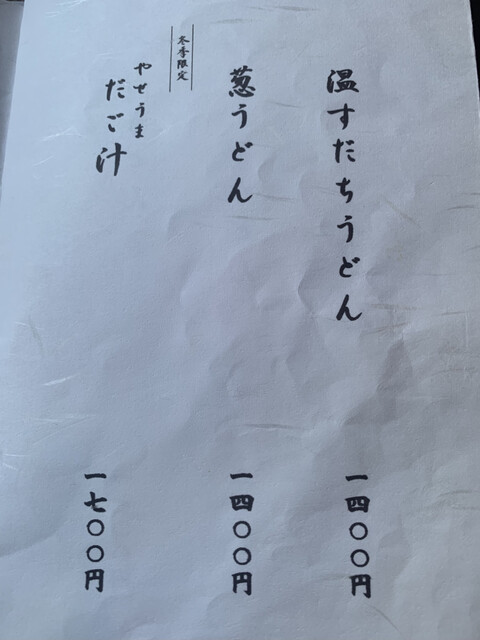 温すだちうどん
一四〇〇円
葱うどん
一四〇〇円
冬季限定
やせうま
だご汁
一七〇〇円